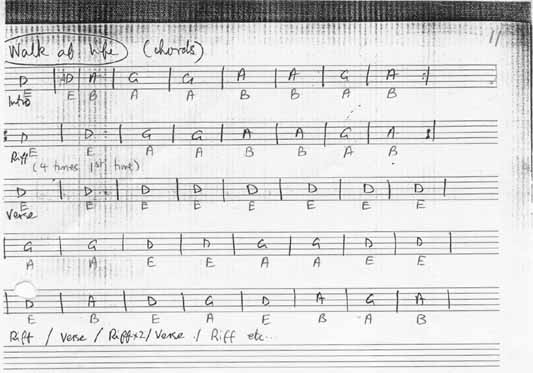 Walk of Life (chords) 11
D AD A G G A A G A
Intro E E B A A B B A B
D D G G A A G A
Riff E E A A B B A B
(4 times 1st time)
D D D D D D D D
E E E E E E E E
Verse
G G D D G G D D
A A E E A A E E
D A D G D A G A
E B E A E B A B
Riff / Verse / Riff x2 / Verse / Riff etc...